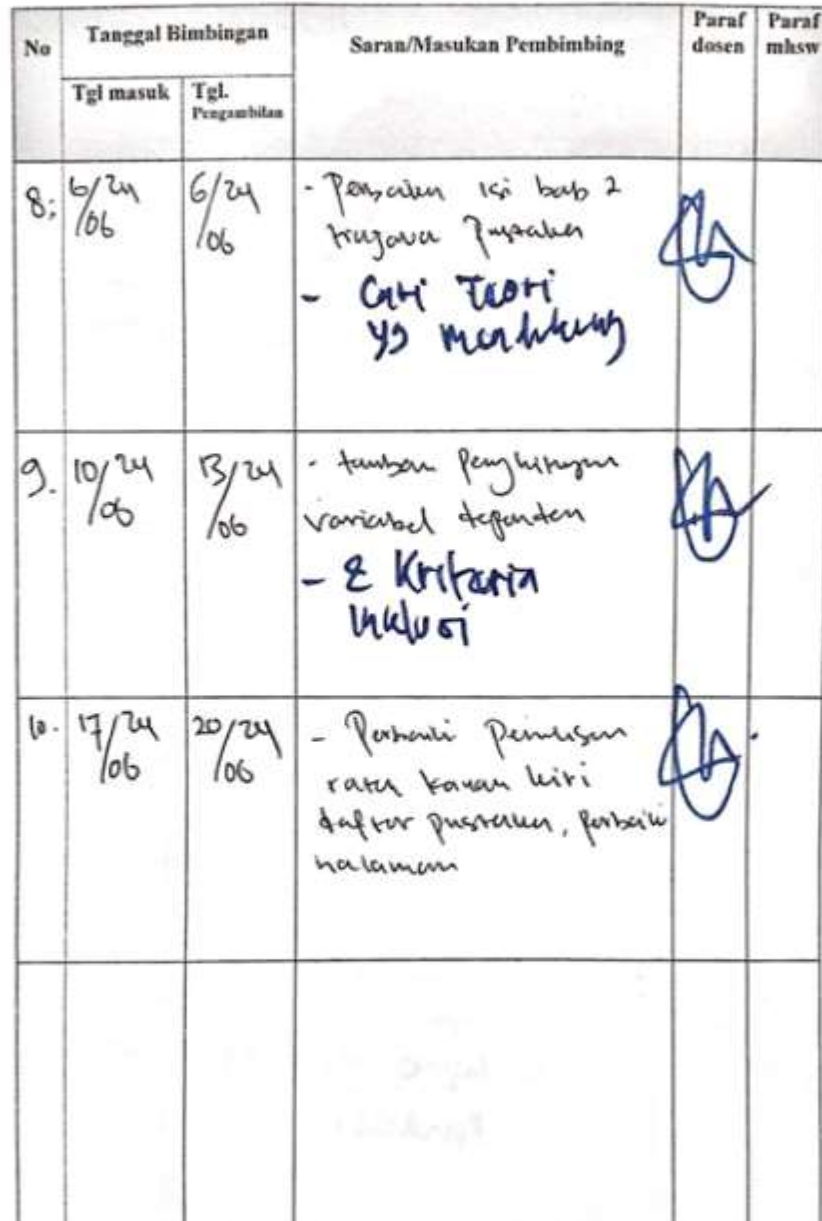 No
Tanggal Bimbingan
Saran/Masukan Pembimbing
Paraf dosen
Paraf mhsw
Tgl masuk
Tgl. Pengambilan
8;
6/24/06
6/24/06
- Perbaiki isi bab 2
tinjauan Pustaka
- Cari Teori
yg mendukung
9.
10/24/06
13/24/06
- tambah Penghitungan
variabel dependen
- & Kriteria
inklusi
10.
17/24/06
20/24/06
- Perbaiki Penulisan
rata kanan kiri
daftar pustaka, perbaiki
halaman